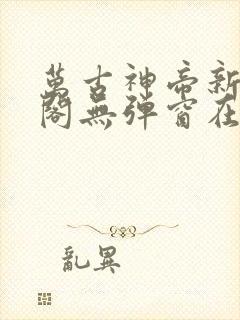 萬古神帝新
閣無彈窗在
亂異